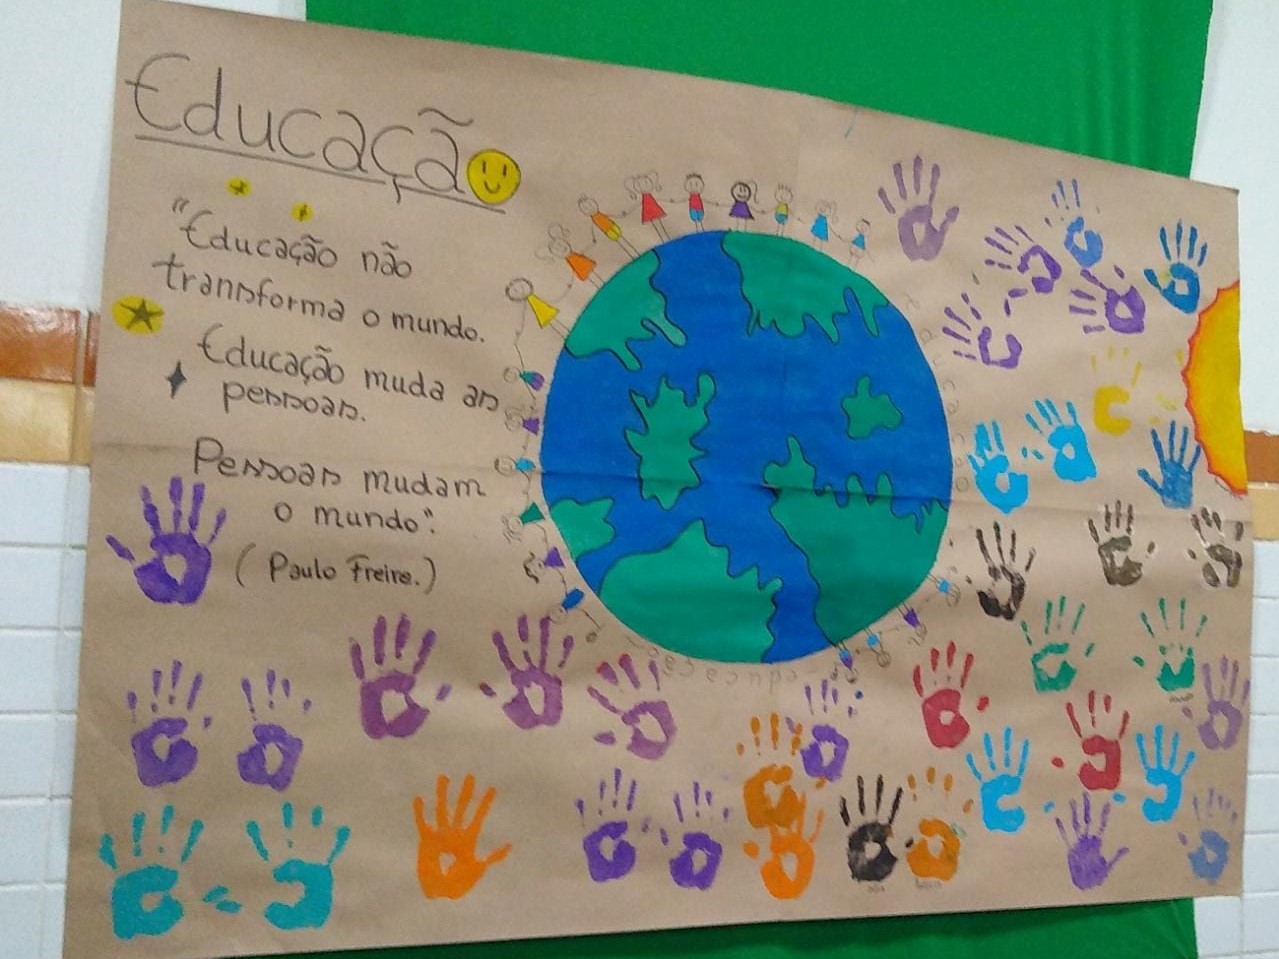 Educação
"Educação não
transforma o mundo.
Educação muda as
pessoas.
Pessoas mudam
o mundo".
(Paulo Freire.)